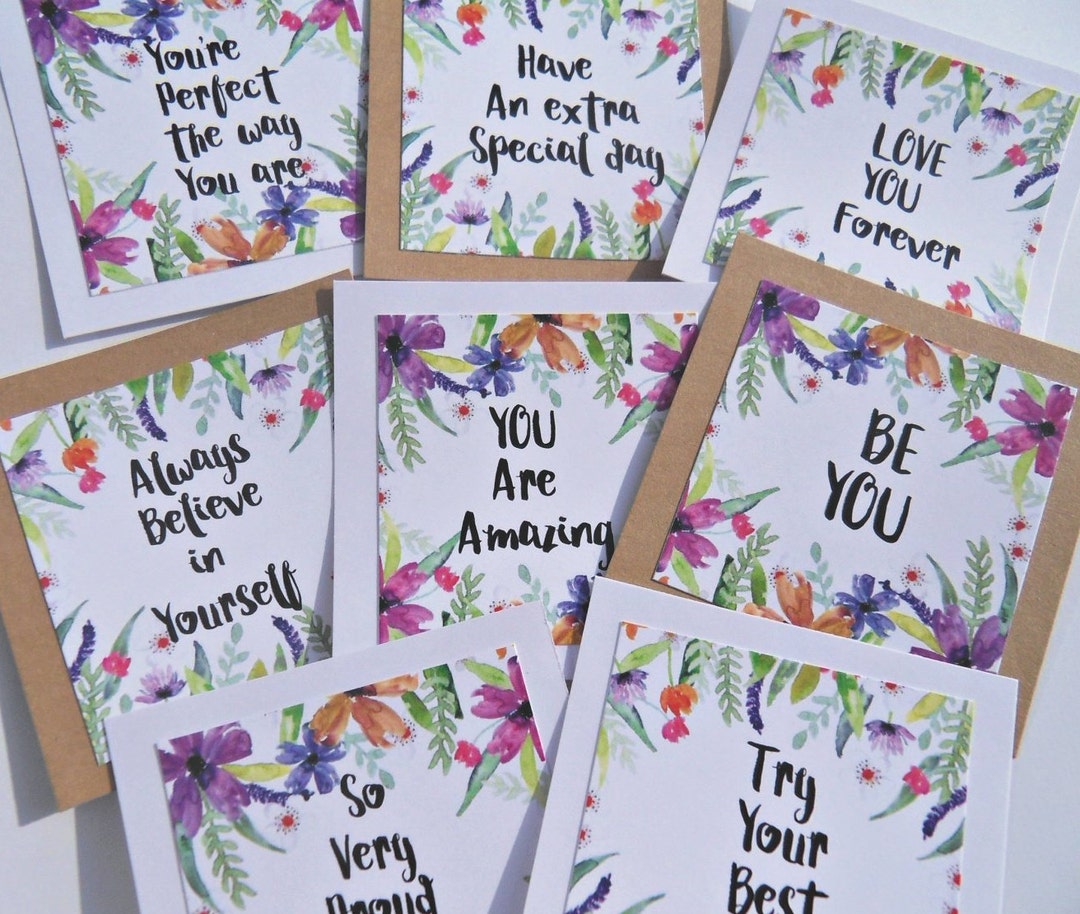 You're
perfect
the way
You are
Have
An extra
Special day
LOVE
YOU
Forever
Always
Believe
in
Yourself
YOU
Are
Amazing
BE
YOU
So
Very
Proud
Try
Your
Best